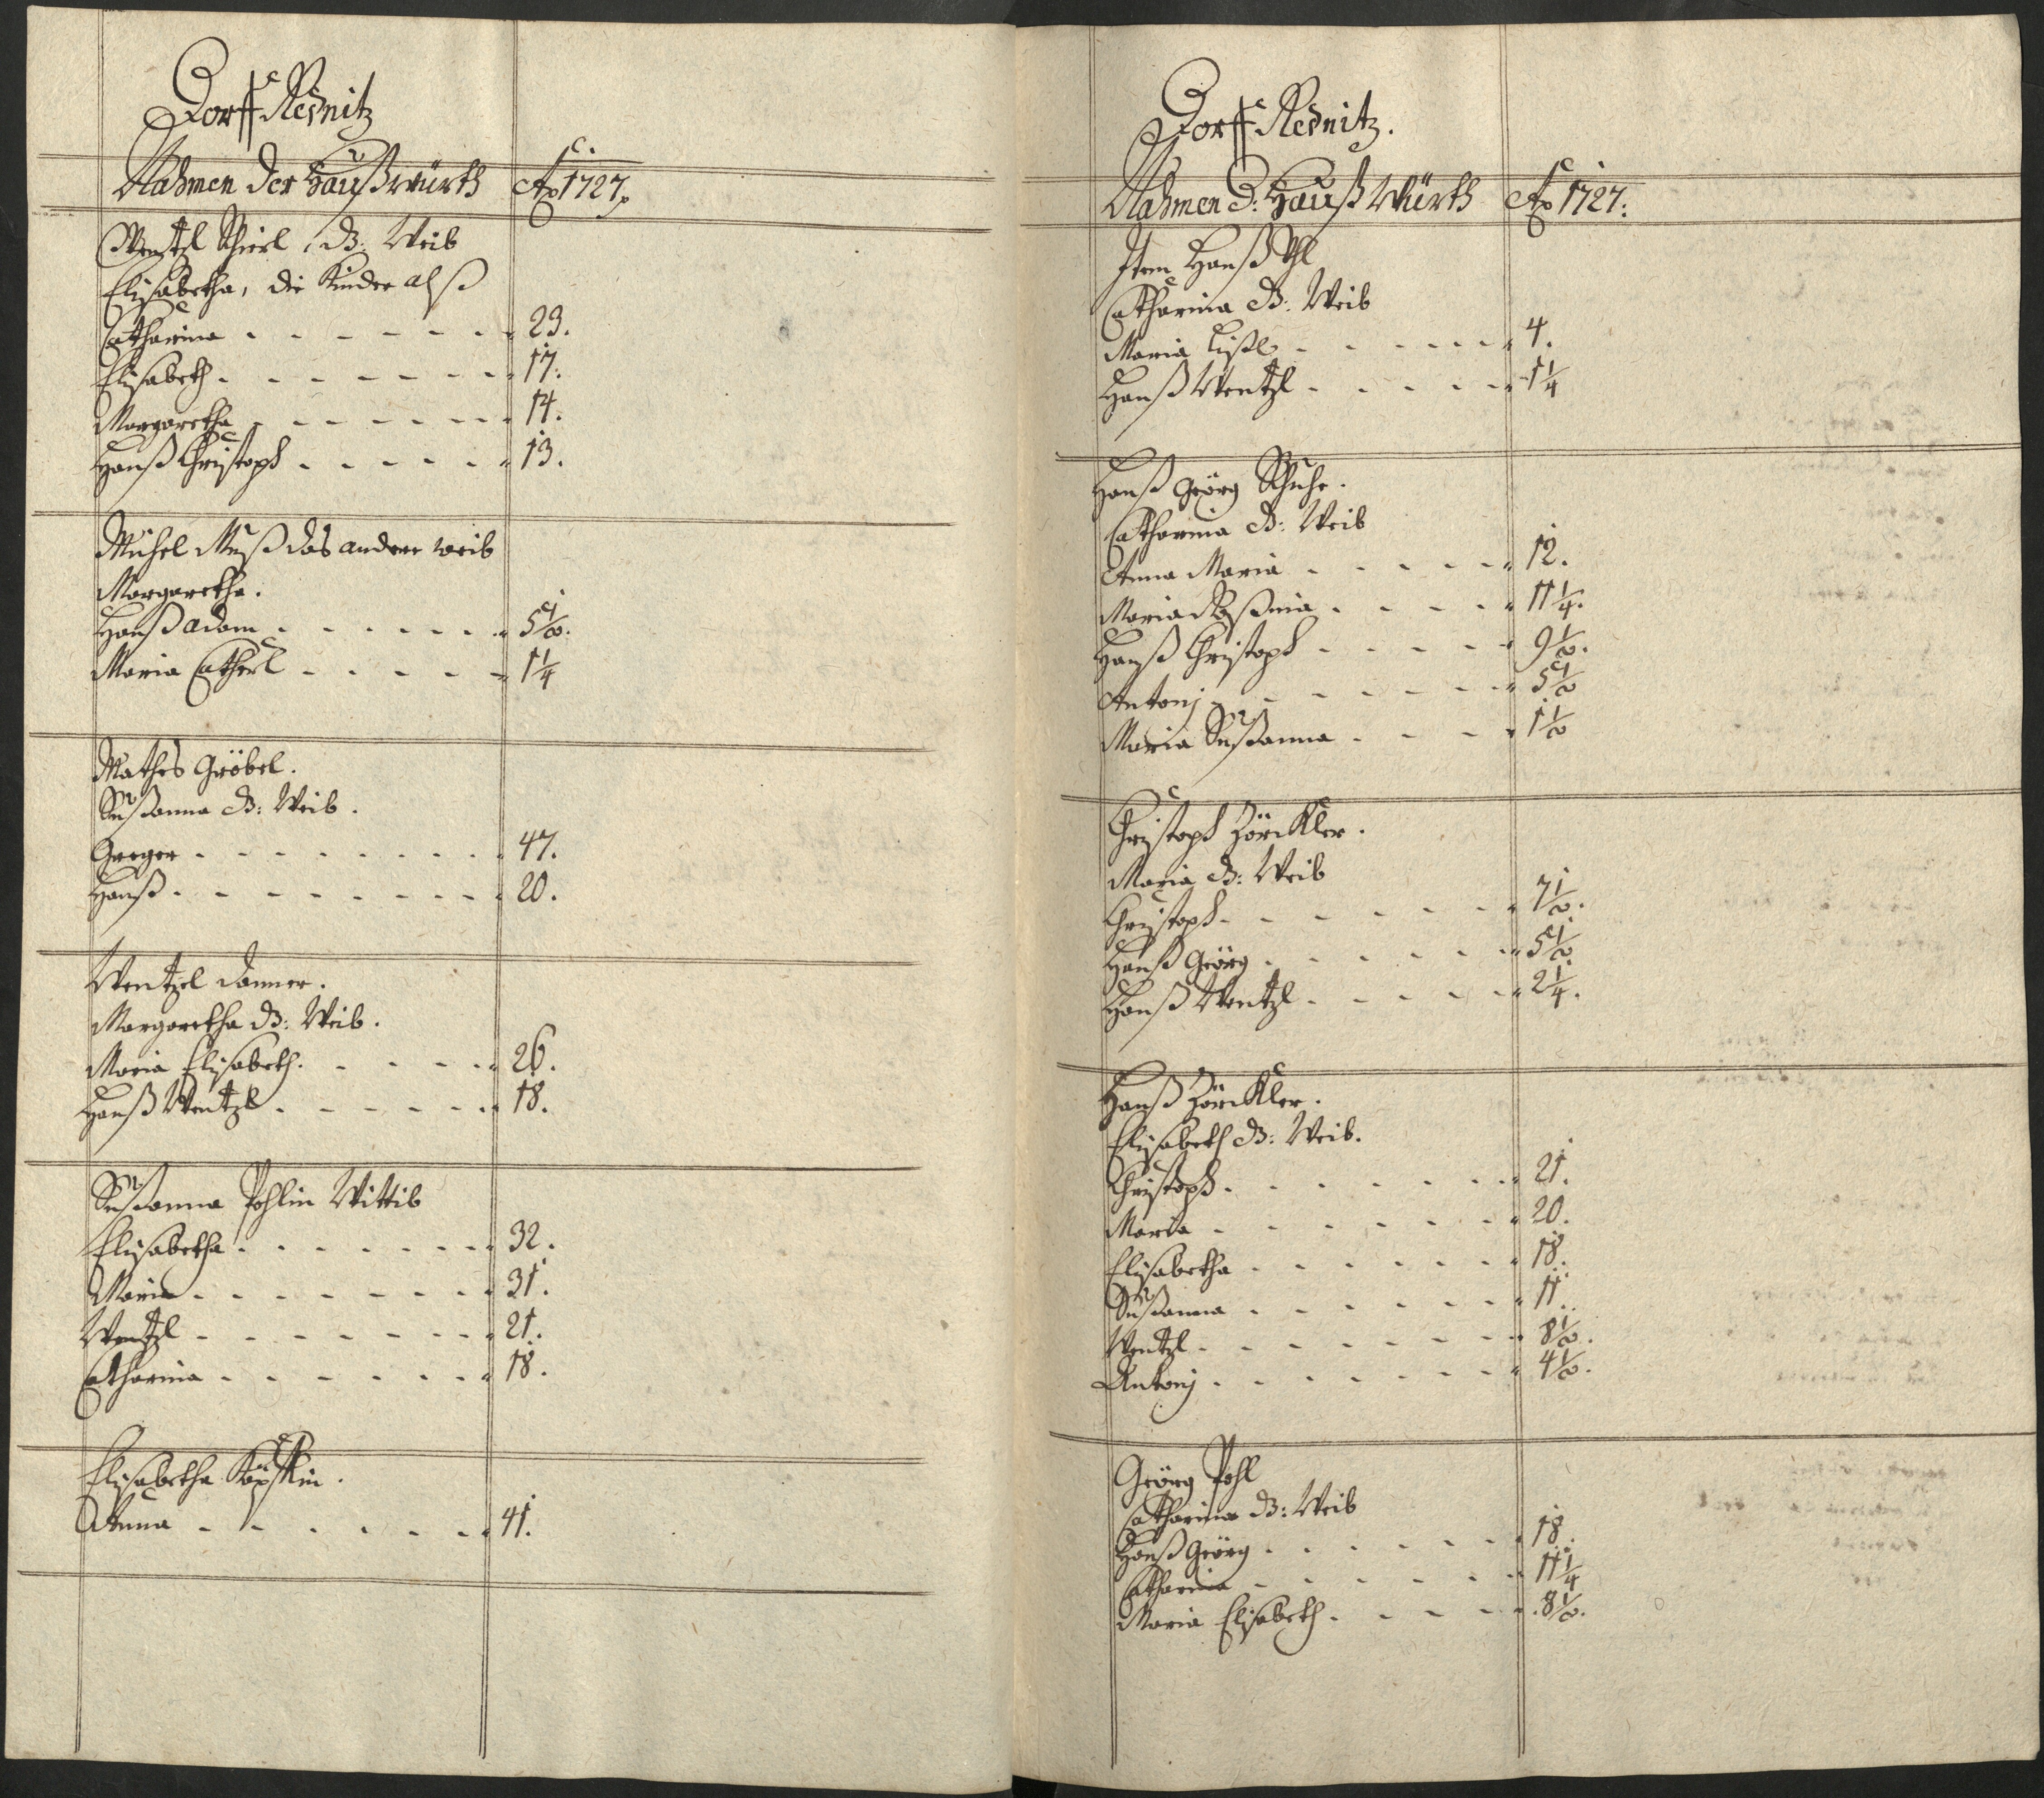 Dorff Rednitz
Nahmen der Haußwürth Ao 1727.
Wentzl Schierl, d: Weib
Elisabetha, die Kinder alß
Catharina - - - - - - - 23.
Elisabeth - - - - - - - 17.
Margaretha - - - - - - 14.
Hanß Christoph - - - - - 13.
Michel Muß das andere weib
Margaretha.
Hanß adam - - - - - - 5 1/2.
Maria Catherl - - - - - 1 1/4
Mathes Gröbel.
Susanna d: Weib.
Greger - - - - - - - - 47.
Hanß - - - - - - - - 20.
Wentzel Donner.
Margaretha d: Weib.
Maria Elisabeth. - - - - 26.
Hanß Wentzl - - - - - - 18.
Susanna Pohlin Wittib
Elisabetha - - - - - - - 32.
Maria - - - - - - - - 31.
Wentzl - - - - - - - - 21.
Catharina - - - - - - - 18.
Elisabetha
Anna - - - - - - - 41.
Dorff Rednitz.
Nahmen d: Hauß Würth Ao 1727:
Item Hanß
Catharina d: Weib
Maria Lißl - - - - - - 4.
Hanß Wentzl - - - - - 1 1/4
Hanß Georg
Catharina d: Weib
Anna Maria - - - - - 12.
Maria - - - - 11 1/4.
Hanß Christoph - - - - - 9 1/2.
Antonj - - - - - - - 5 1/2
Maria Susanna - - - - 1 1/2
Christoph Zörckler.
Maria d: Weib
Christoph - - - - - - - 7 1/2.
Hanß Georg - - - - - - 5 1/2
Hanß Wentzl - - - - - 2 1/4.
Hanß Zörckler.
Elisabeth d: Weib.
Christoph - - - - - - - 21.
Maria - - - - - - - 20.
Elisabetha - - - - - - 18.
Susanna - - - - - - 11.
Wentzl - - - - - - - 8 1/2.
Antonj - - - - - - - 4 1/2.
Georg Pohl
Catharina d: Weib
Hanß Georg - - - - - - 18.
Catharina - - - - - - 11 1/4
Maria Elisabeth - - - - 8 1/2.